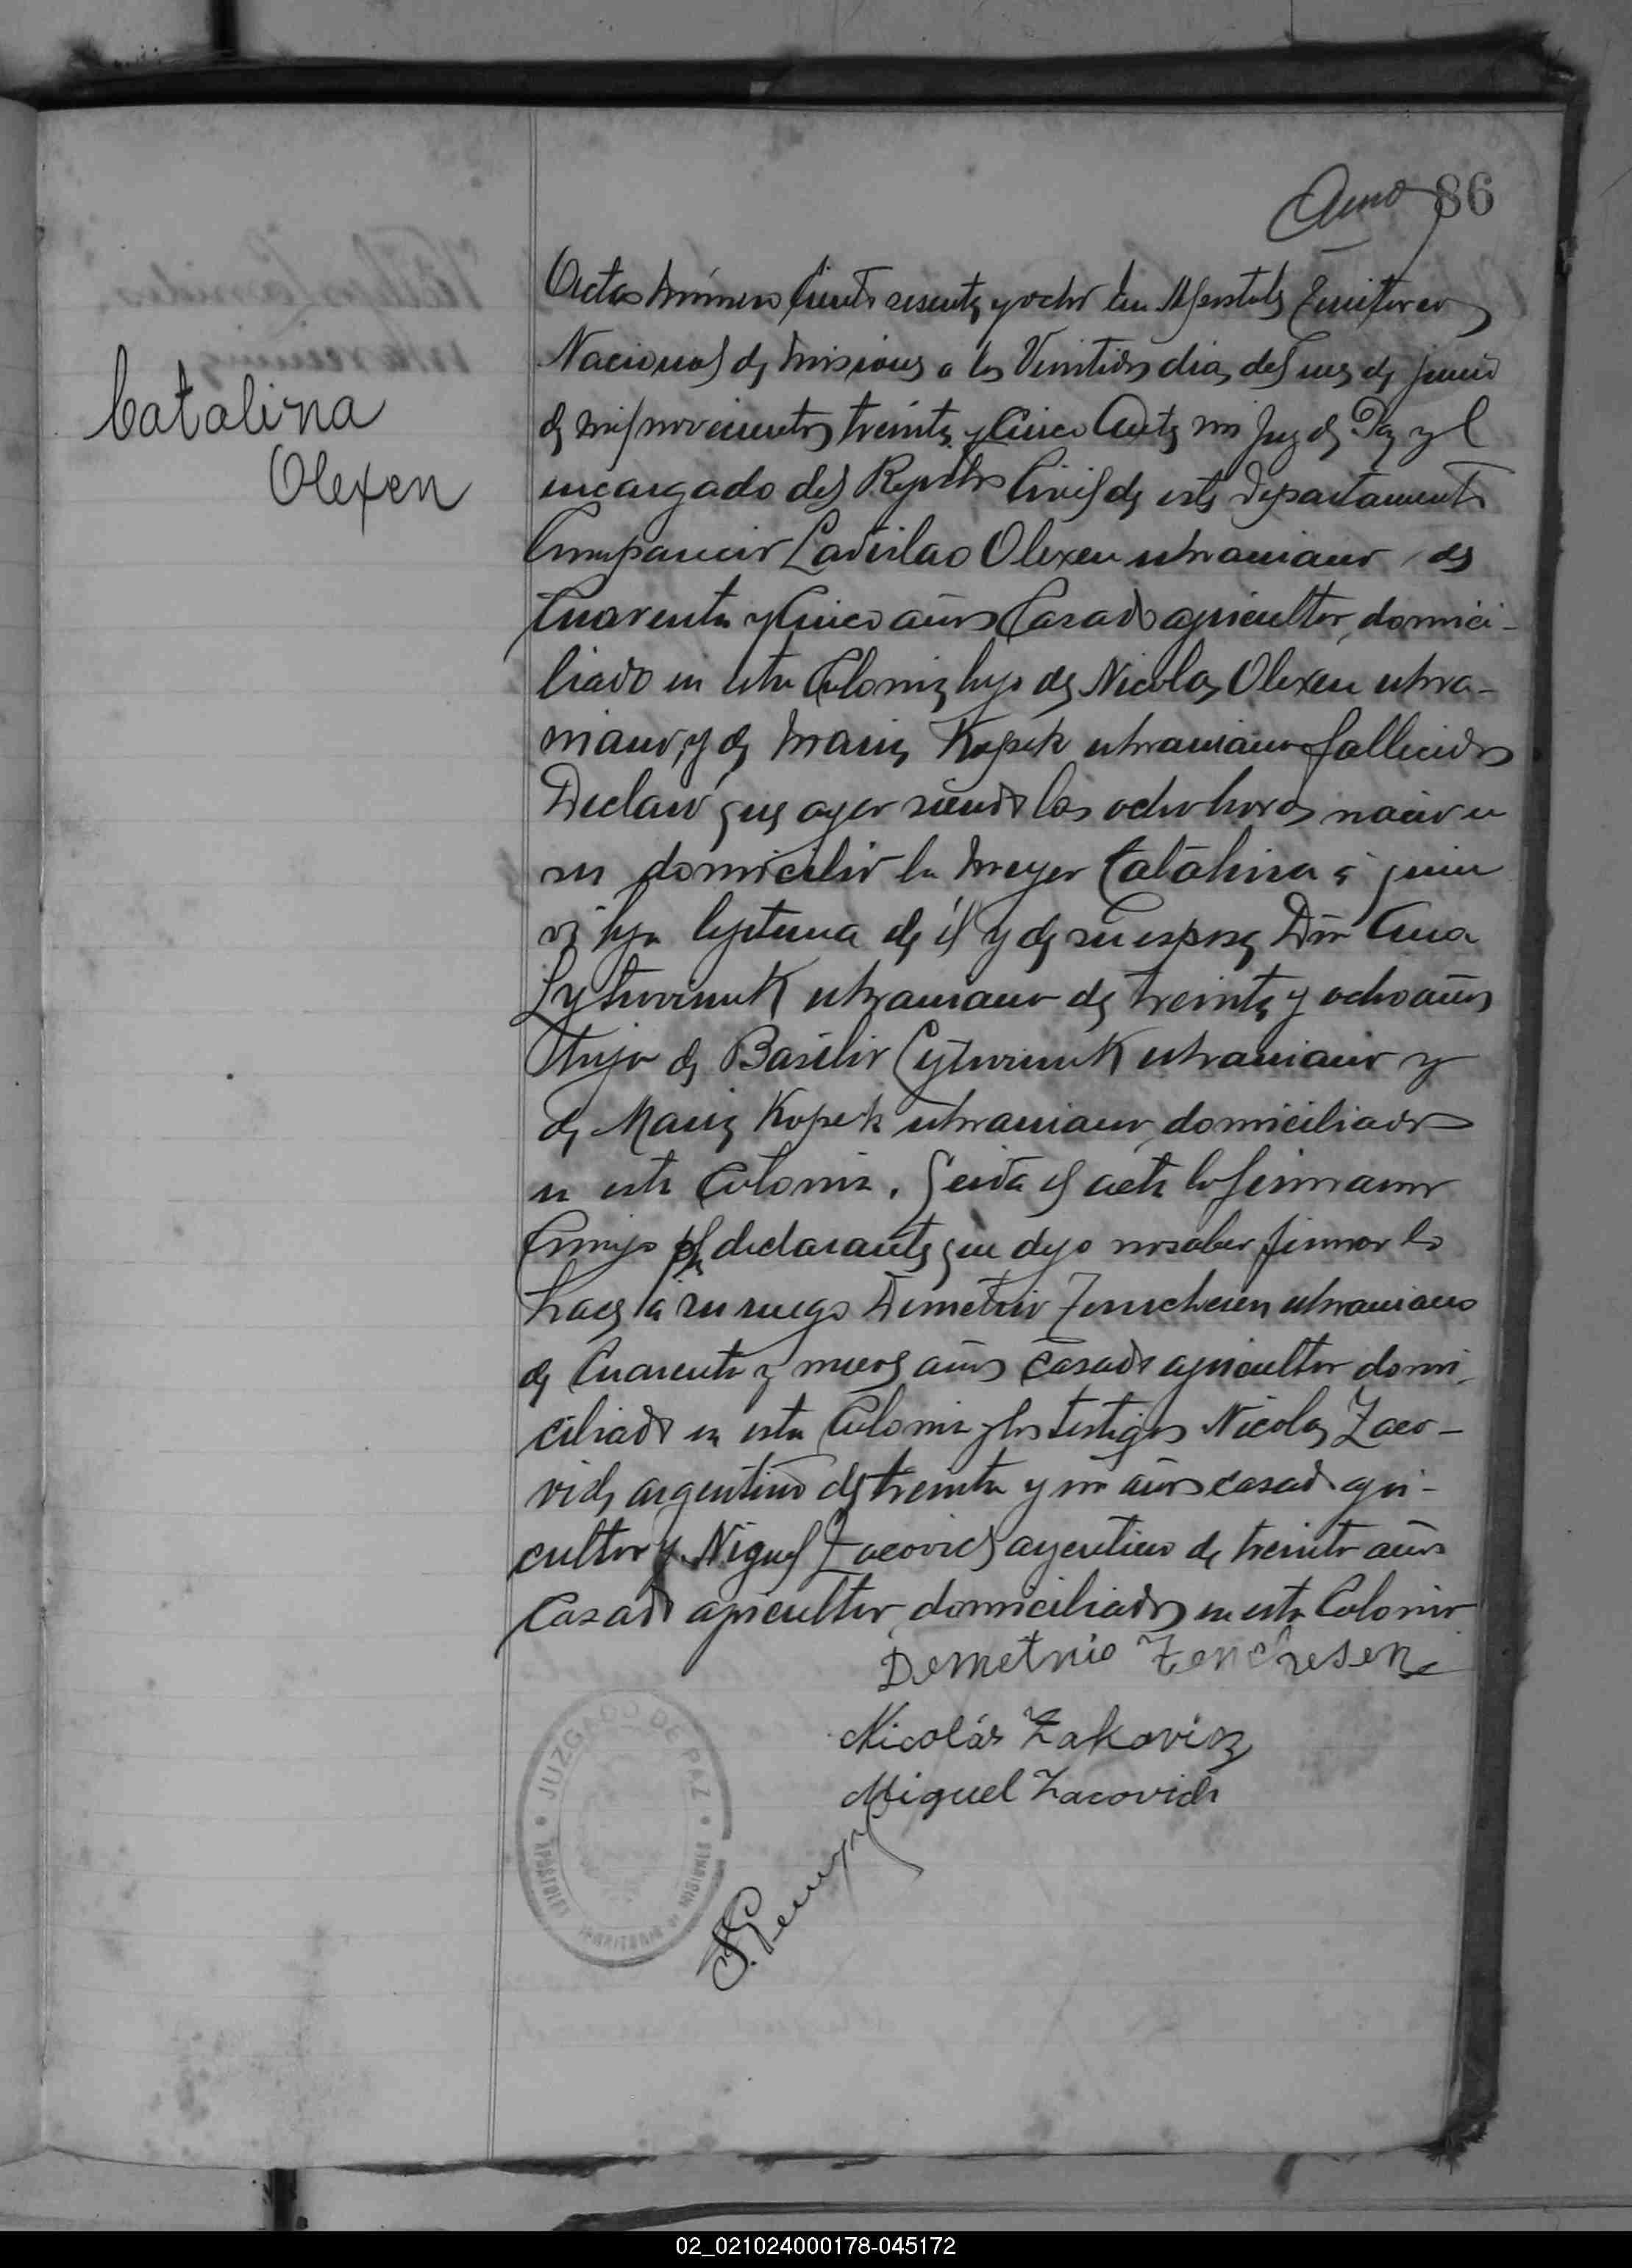 86
Catalina
Olexen
Acta número Ciento sesenta y ocho En Apostoles Territorio
Nacional de Misiones a los Veintidos dias del mes de junio
de mil novecientos treinta y Cinco Ante mi Juez de Paz y
encargado del Registro Civil de este Departamento
Compareció Ladislao Olexen ukraniano de
Cuarenta y Cinco años Casado agricultor, domici-
liado en esta Colonia hijo de Nicolas Olexen ukra-
niano, y de Maria Kopek ukraniano fallecidos
Declaró que ayer siendo las ocho horas nació en
su domicilio la mujer Catalina á quien
vi hija legitima de él y de su esposa Dña Ana
Lytwinuk ukraniano de treinta y ocho años
hija de Basilio Lytwinuk ukraniano y
de Maria Kopek ukraniano, domiciliados
en esta Colonia. Leida el acta la firmaron
Conmigo declarante que dijo no saber firmar lo
hace á su ruego Demetrio ukraniano
de Cuarenta y nueve años Casado agricultor domi-
ciliado en esta Colonia y los testigos Nicolas Zaco-
vich argentino de treinta y un años casado agri-
cultor y Miguel Zacovich argentino de treinta años
Casado agricultor, domiciliados en esta Colonia
Demetrio
Nicolás Zakovicz
Miguel Zacovich
JUZGADO DE PAZ
APOSTOLES TERRITORIO DE MISIONES
02_021024000178-045172